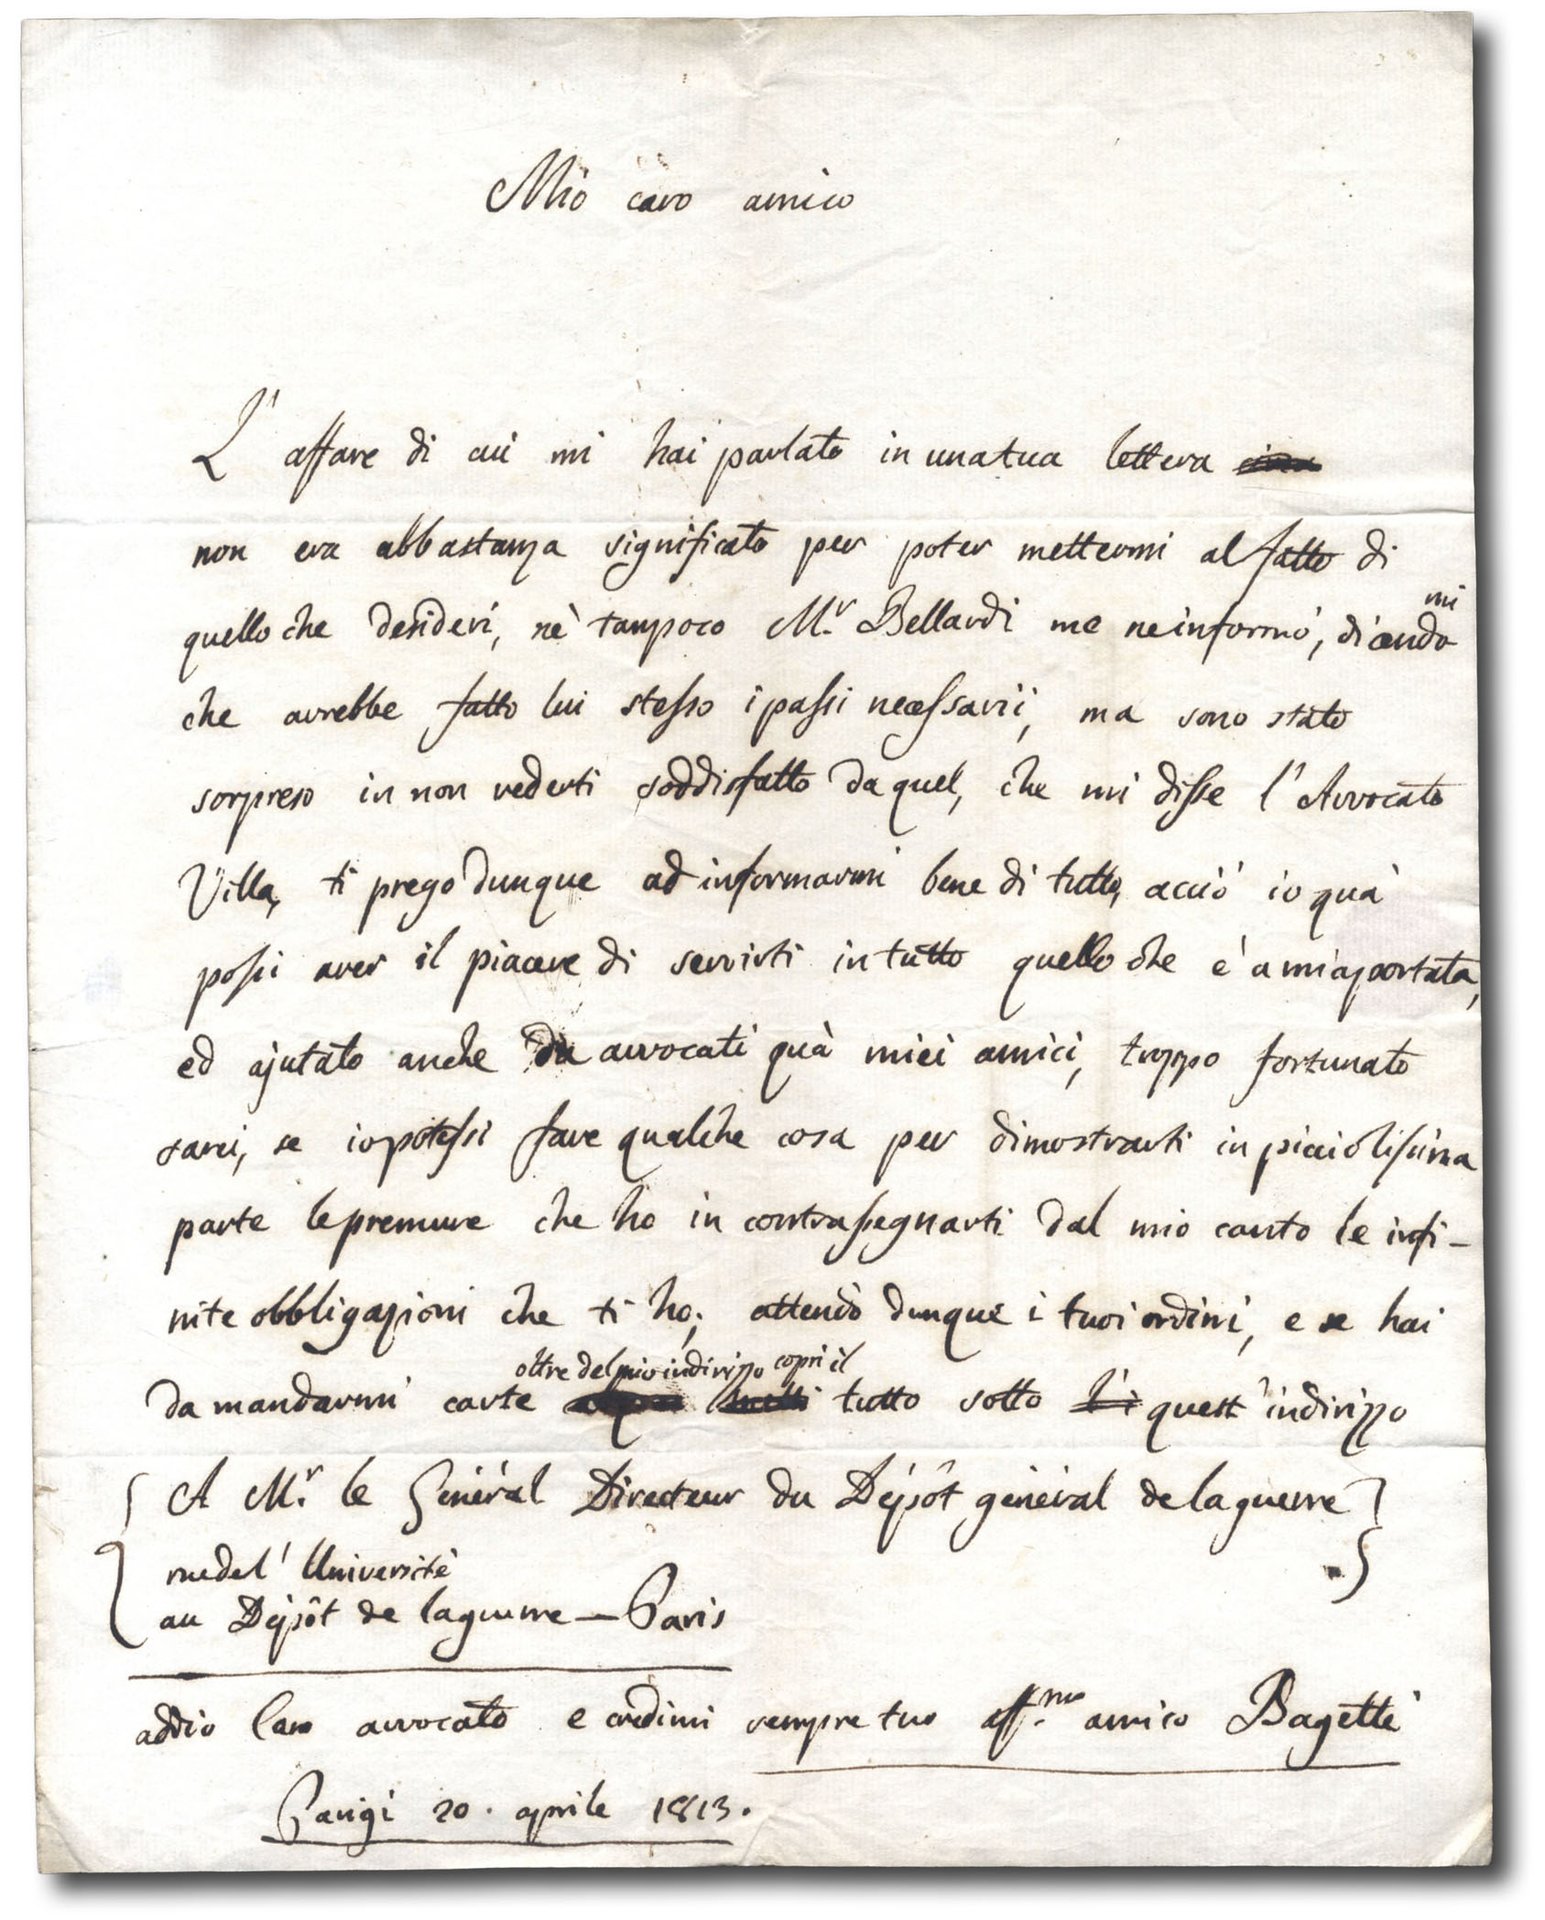 Mio caro amico
L'affare di cui mi hai parlato in una tua lettera
non era abbastanza significato per poter mettermi al fatto di
quello che desideri, nè tampoco M.r Bellardi me ne informò, dicendomi
che avrebbe fatto lui stesso i passi necessarii, ma sono stato
sorpreso in non vederti soddisfatto da quel, che mi disse l'Avvocato
Villa, ti prego dunque ad informarmi bene di tutto, acciò io quà
possi aver il piacere di servirti in tutto quello che è a mia portata,
ed ajutato anche da avvocati quà miei amici, troppo fortunato
sarei, se io potessi fare qualche cosa per dimostrarti in picciolissima
parte le premure che ho in contrassegnarti dal mio canto le infi-
nite obbligazioni che ti ho; attendo dunque i tuoi ordini, e se hai
da mandarmi carte oltre del mio indirizzo copri il tutto sotto quest'indirizzo
A M.r le Général Directeur du Dépôt général de la guerre
rue de l'Université
au Dépôt de la guerre — Paris
addio Caro avvocato e credimi sempre tuo aff.mo amico Bagetti
Parigi 20. aprile 1813.